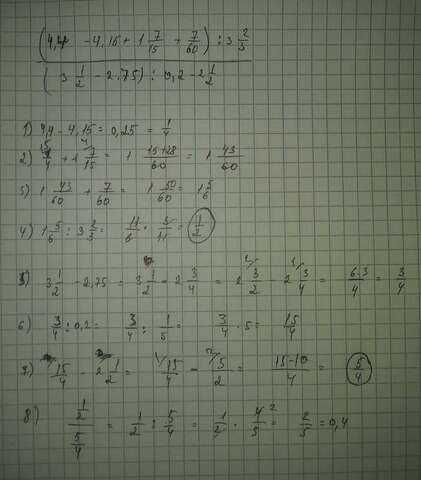 (4,4 - 4,15 + 1 7/15 + 7/60) : 3 2/3
(3 1/2 - 2,75) : 0,2 - 2 1/2
1) 4,4 - 4,15 = 0,25 = 1/4
2) 1/4 + 1 7/15 = 1 15+28/60 = 1 43/60
3) 1 43/60 + 7/60 = 1 50/60 = 1 5/6
4) 1 5/6 : 3 2/3 = 11/6 · 3/11 = 1/2
5) 3 1/2 - 2,75 = 3 1/2 - 2 3/4 = 2 3/2 - 2 3/4 = 6-3/4 = 3/4
6) 3/4 : 0,2 = 3/4 : 1/5 = 3/4 · 5 = 15/4
7) 15/4 - 2 1/2 = 15/4 - 5/2 = 15-10/4 = 5/4
8) 1/2 / 5/4 = 1/2 : 5/4 = 1/2 · 4/5 = 2/5 = 0,4